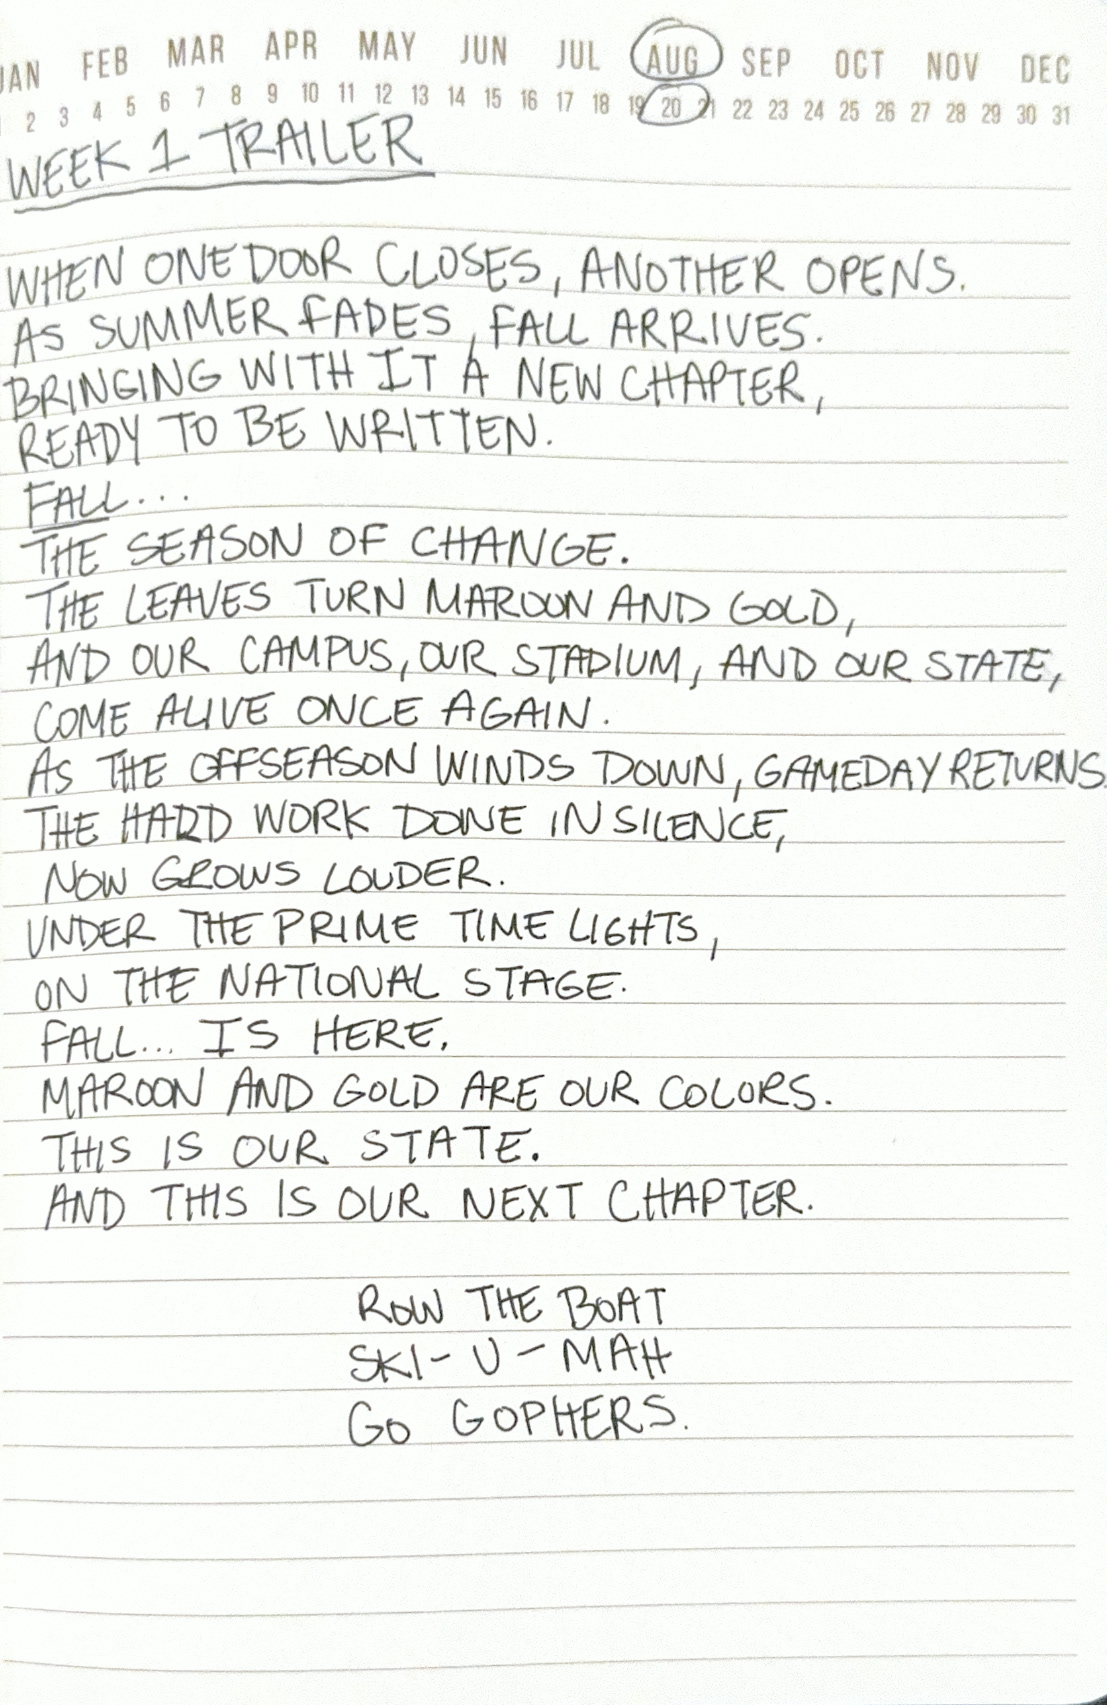 JAN FEB MAR APR MAY JUN JUL AUG SEP OCT NOV DEC
2 3 4 5 6 7 8 9 10 11 12 13 14 15 16 17 18 19 20 21 22 23 24 25 26 27 28 29 30 31
WEEK 1 TRAILER
WHEN ONE DOOR CLOSES, ANOTHER OPENS.
AS SUMMER FADES, FALL ARRIVES.
BRINGING WITH IT A NEW CHAPTER,
READY TO BE WRITTEN.
FALL...
THE SEASON OF CHANGE.
THE LEAVES TURN MAROON AND GOLD,
AND OUR CAMPUS, OUR STADIUM, AND OUR STATE,
COME ALIVE ONCE AGAIN.
AS THE OFFSEASON WINDS DOWN, GAMEDAY RETURNS.
THE HARD WORK DONE IN SILENCE,
NOW GROWS LOUDER.
UNDER THE PRIME TIME LIGHTS,
ON THE NATIONAL STAGE.
FALL... IS HERE.
MAROON AND GOLD ARE OUR COLORS.
THIS IS OUR STATE.
AND THIS IS OUR NEXT CHAPTER.
ROW THE BOAT
SKI-U-MAH
GO GOPHERS.